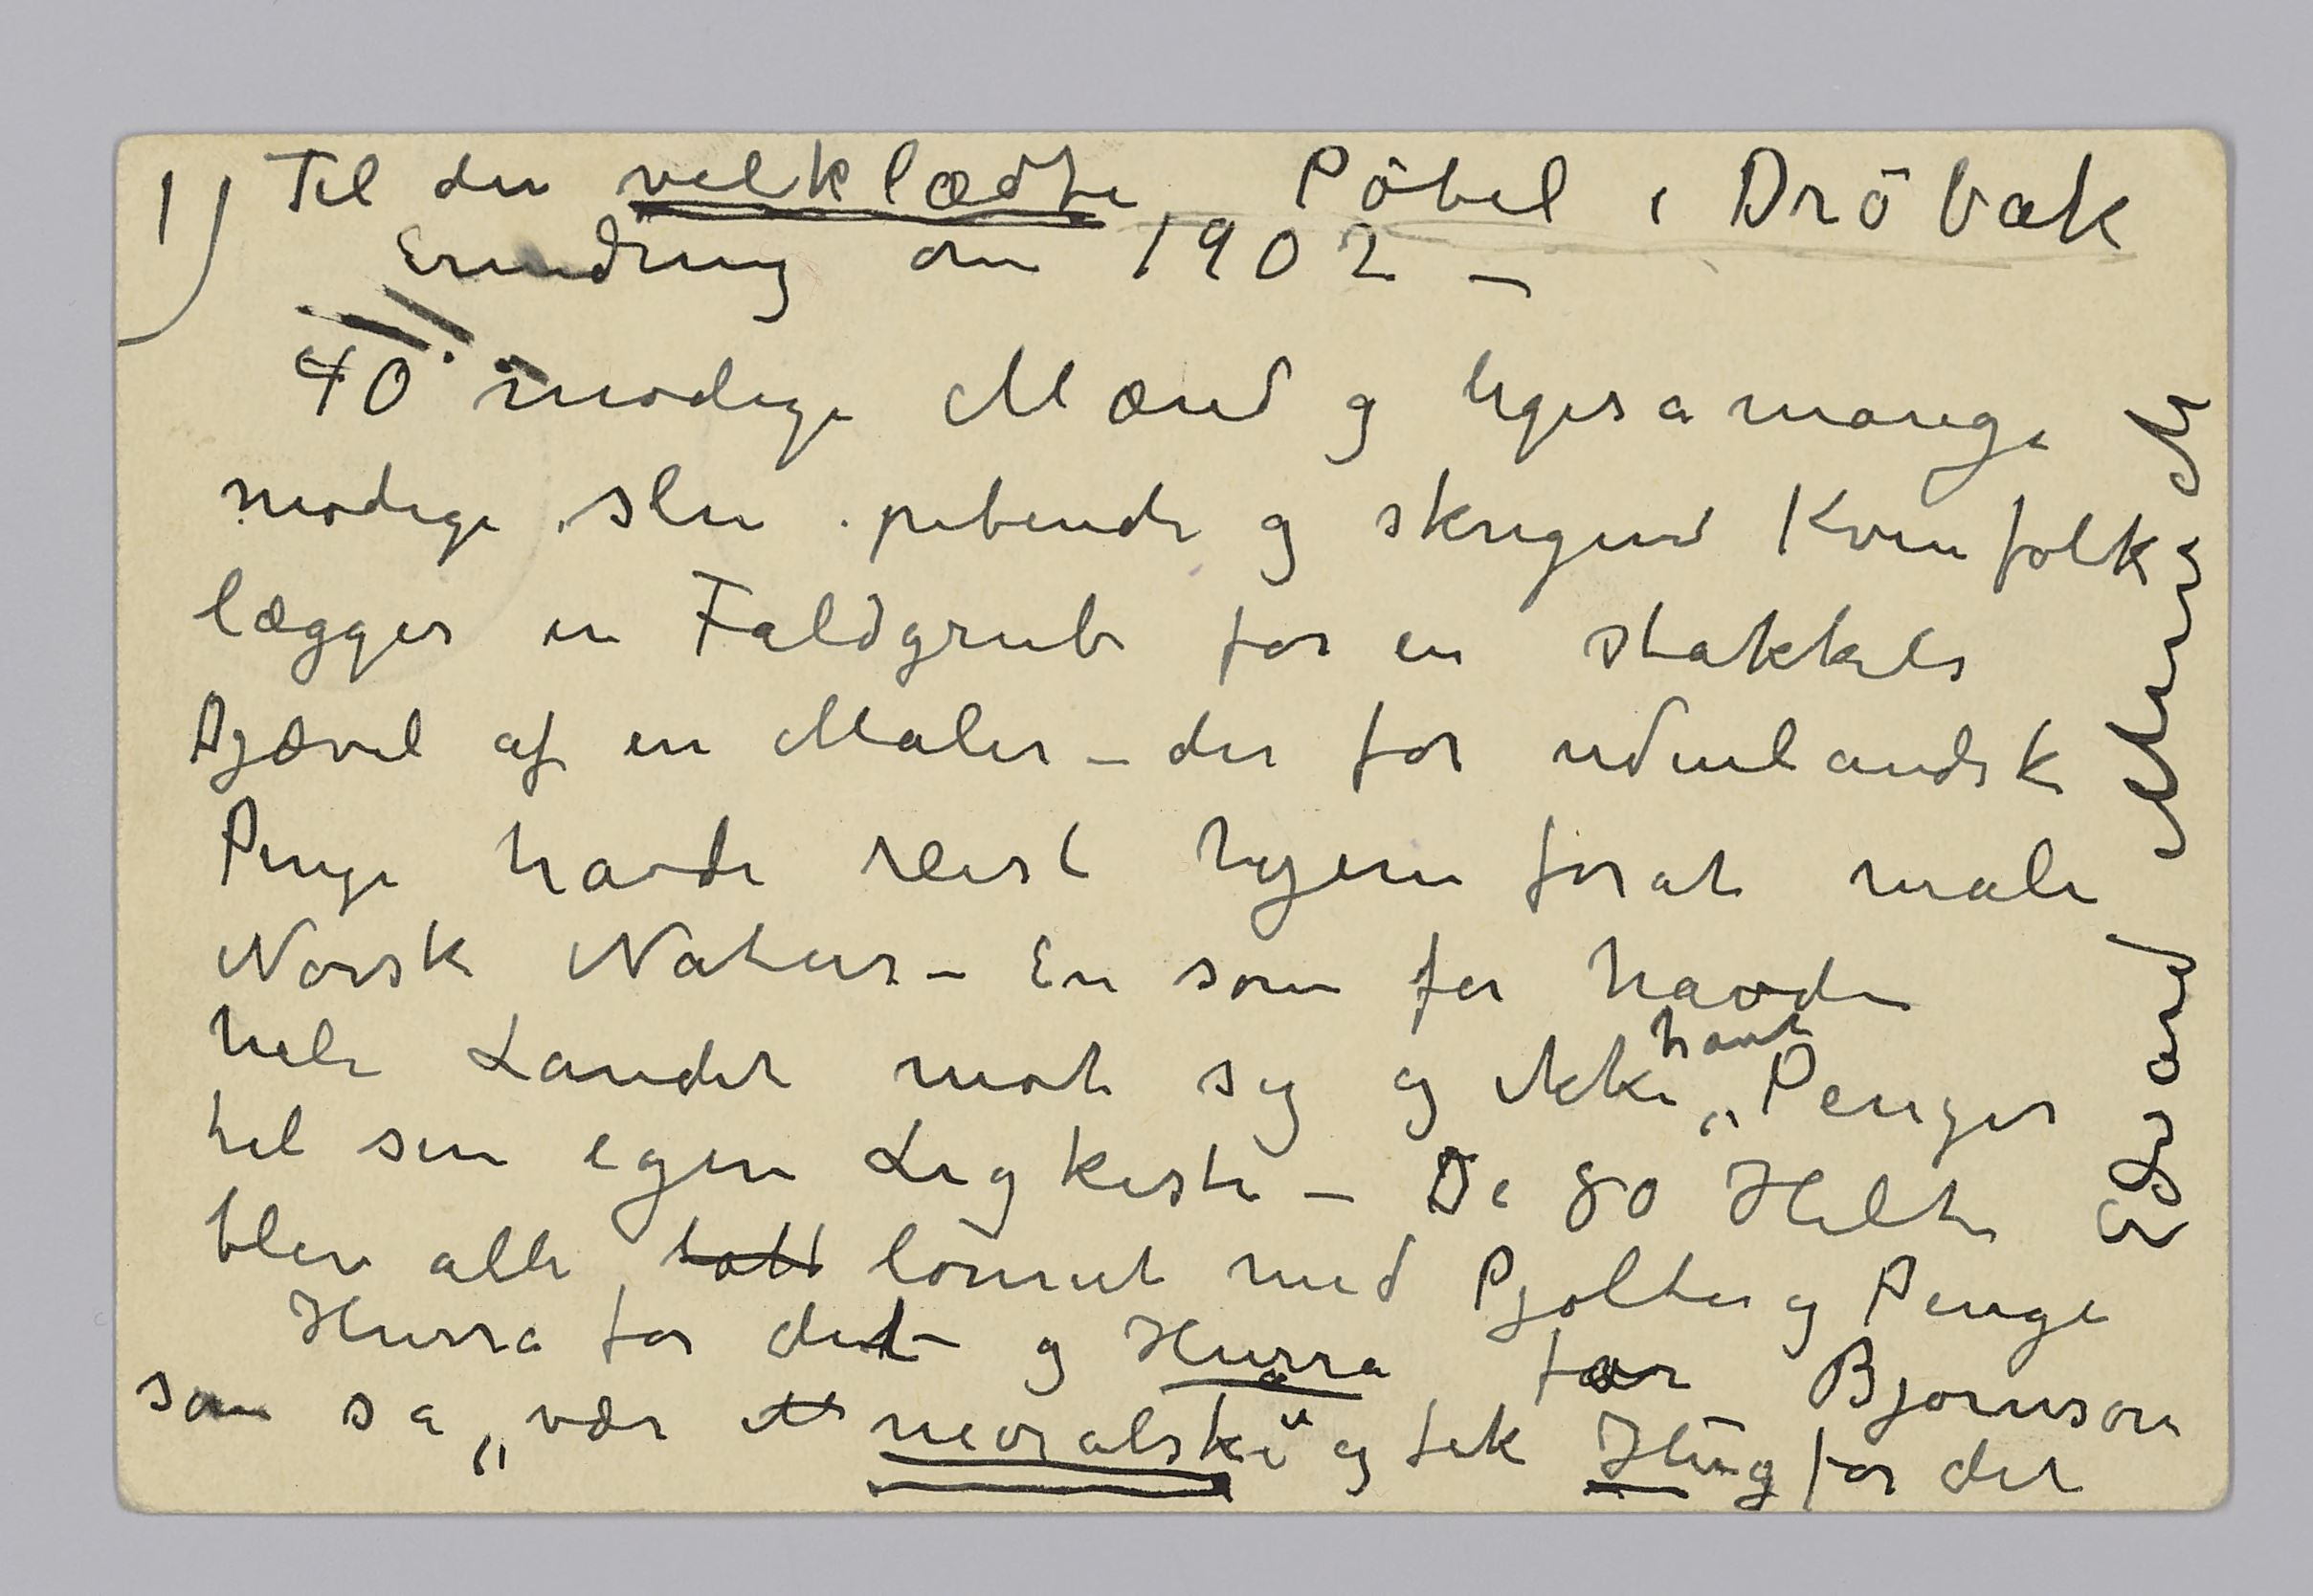 1) Til den velklædte Pöbel i Dröbak
Erindring om 1902 –
40 modige Mænd og ligesamange
modige slu pibende og skrigend Kvinfolk
lægger en Faldgrube for en stakkels
Djævel af en Maler – der for udenlandsk
Penge havde reist hjem forat male
Norsk Natur – En som før havde
hele Landet mot sig og ikke havt Penger
til sin egen Ligkiste – De 80 Helte
blev alle lönnet med Pjolter og Penge
Hurra for det – og Hurra for Bjørnson
som sa „vær moralske" og fik Hug for det
Edvard Munch